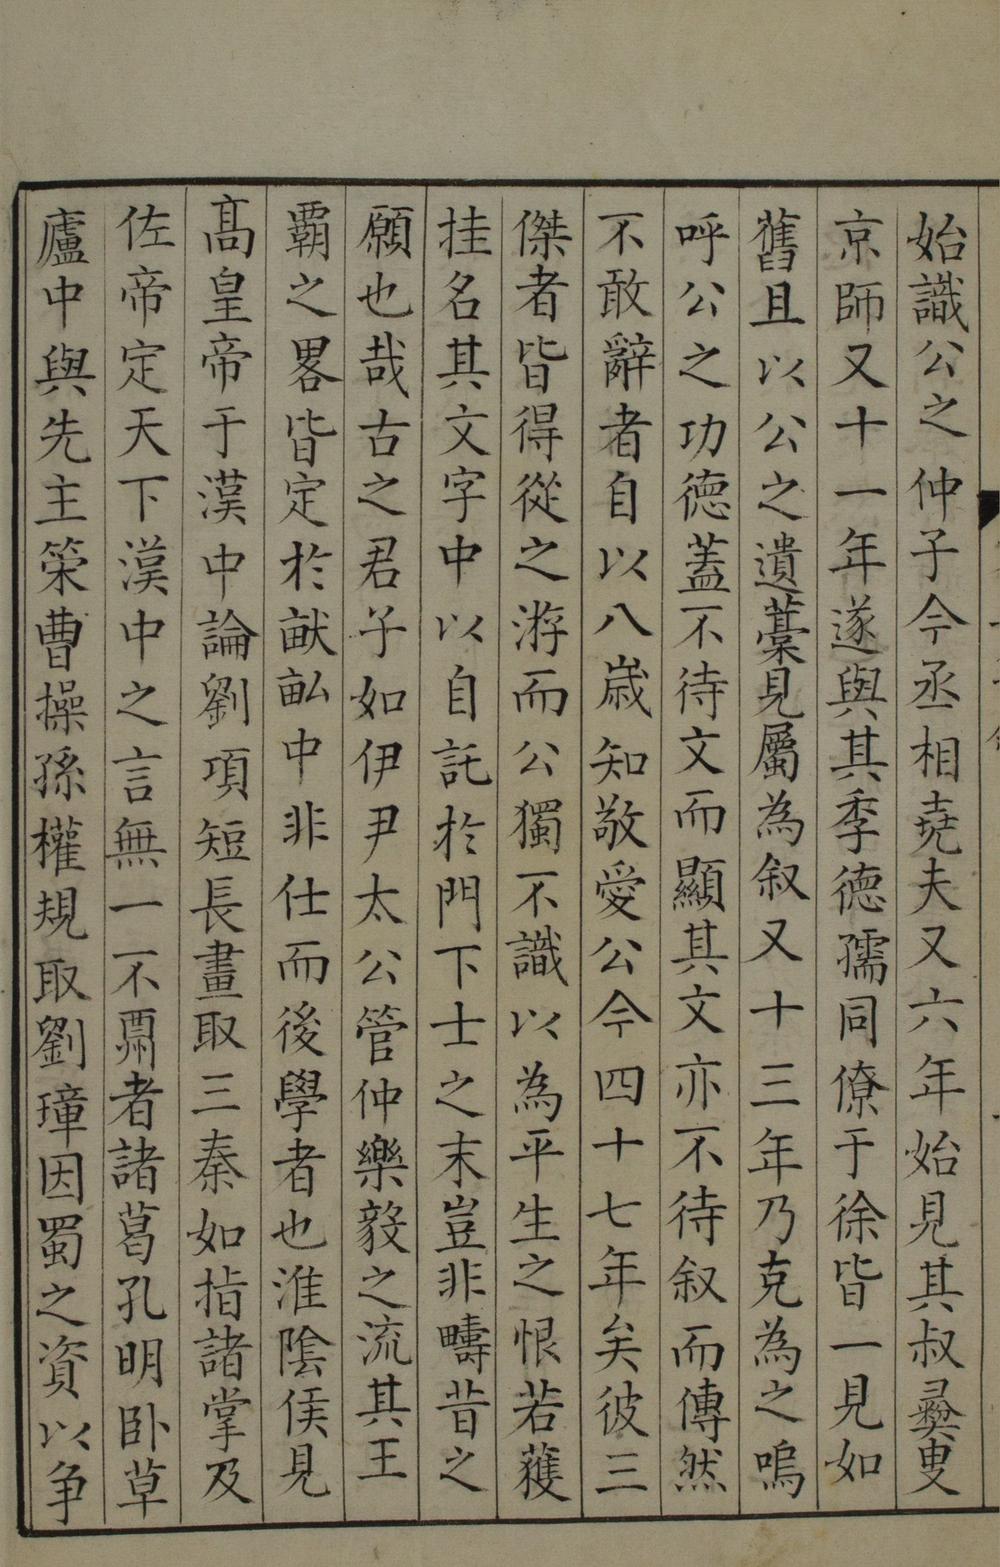 始識公之仲子今丞相堯夫又六年始見其叔彛叟
京師又十一年遂與其季德孺同僚于徐皆一見如
舊且以公之遺藳見屬為叙又十三年乃克為之嗚
呼公之功德蓋不待文而顯其文亦不待叙而傳然
不敢辭者自以八歲知敬愛公今四十七年矣彼三
傑者皆得從之游而公獨不識以為平生之恨若獲
挂名其文字中以自託於門下士之末豈非疇昔之
願也哉古之君子如伊尹太公管仲樂毅之流其王
霸之畧皆定於畎畝中非仕而後學者也淮陰侯見
髙皇帝于漢中論劉項短長畫取三秦如指諸掌及
佐帝定天下漢中之言無一不酬者諸葛孔明卧草
廬中與先主策曹操孫權規取劉璋因蜀之資以争